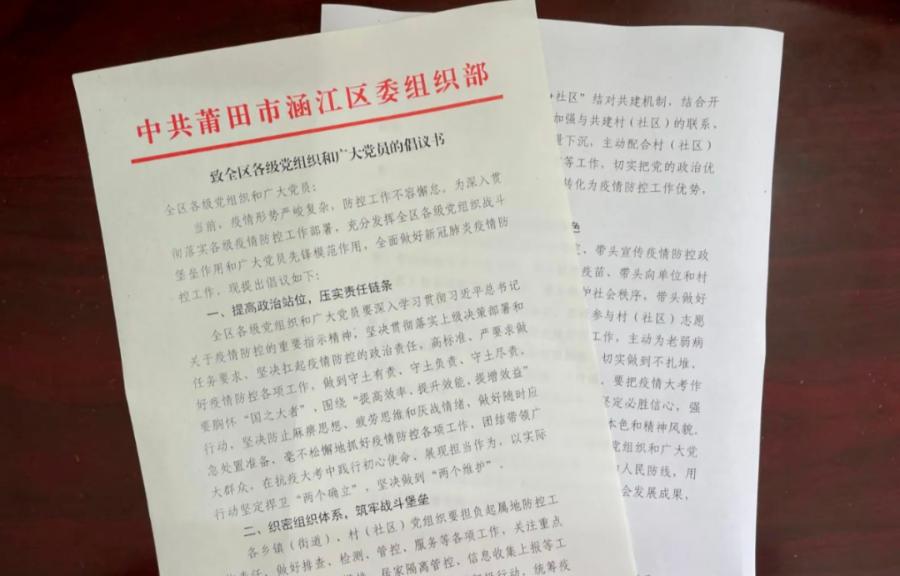 中共莆田市涵江区委组织部
致全区各级党组织和广大党员的倡议书
全区各级党组织和广大党员：
当前，疫情形势严峻复杂，防控工作不容懈怠。为深入贯
彻落实各级疫情防控工作部署，充分发挥全区各级党组织战斗
堡垒作用和广大党员先锋模范作用，全面做好新冠肺炎疫情防
控工作，现提出倡议如下：
一、提高政治站位，压实责任链条
全区各级党组织和广大党员要深入学习贯彻习近平总书记
关于疫情防控的重要指示精神，坚决贯彻落实上级决策部署和
任务要求，坚决扛起疫情防控的政治责任，高标准、严要求做
好疫情防控各项工作，做到守土有责、守土负责、守土尽责。
要胸怀“国之大者”，围绕“提高效率、提升效能、提增效益”
行动，坚决防止麻痹思想、疲劳思维和厌战情绪，做好随时应
急处置准备，毫不松懈地抓好疫情防控各项工作，团结带领广
大群众，在抗疫大考中践行初心使命、展现担当作为，以实际
行动坚定捍卫“两个确立”，坚决做到“两个维护”。
二、织密组织体系，筑牢战斗堡垒
各乡镇（街道）、村（社区）党组织要担负起属地防控工
责任，做好排查、检测、管控、服务等各项工作，关注重点
居家隔离管控、信息收集上报等工
行动，统筹疫
社区”结对共建机制，结合开
加强与共建村（社区）的联系，
下沉，主动配合村（社区）
等工作，切实把党的政治优
转化为疫情防控工作优势，
、带头宣传疫情防控政
疫苗、带头向单位和村
社会秩序，带头做好
参与村（社区）志愿
工作，主动为老弱病
切实做到不扎堆、
要把疫情大考作
坚定必胜信心，强
本色和精神风貌。
党组织和广大党
人民防线，用
会发展成果，